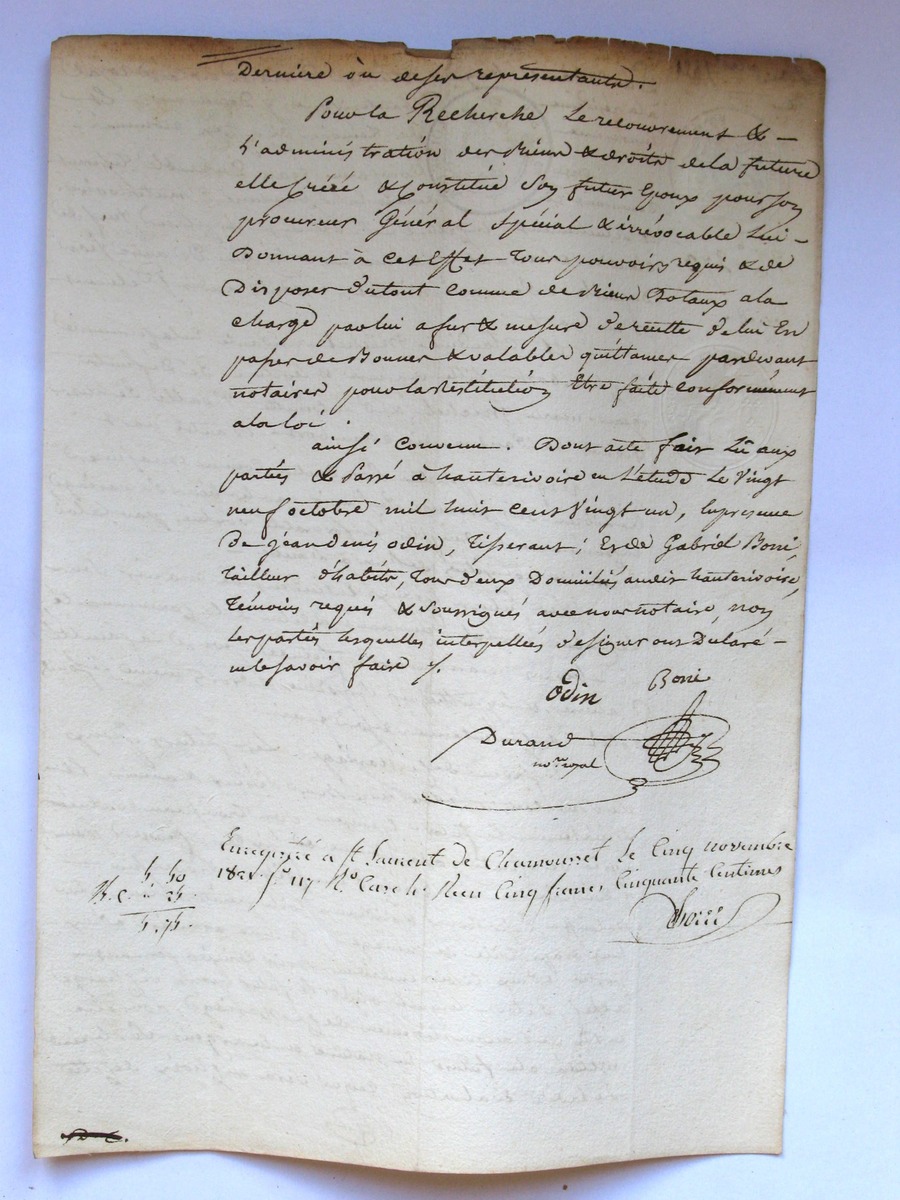 Derniere ou deses representants.
Pour la Recherche Le recouvrement & –
L'administration des Biens & droits de la future
elle Créée & Constitué Son futur Epoux pour son
procureur Général Spécial & irrévocable Lui –
Donnant à cet Effet tous pouvoirs requis & de
Disposer du tout comme de Biens Dotaux a la
charge par lui a fur & mesure de recette de lui En
passer de Bonnes & valables quittances pardevant
notaires pour la Restitution Etre faite conformément
a la loi.
ainsi convenu. Dont acte fait Lu aux
parties & Passé à hauterivoire en L'etude Le Vingt
neuf octobre mil huit cent Vingt un, En presence
De jean Denis odin, Tisserant; Et de Gabriel Boni,
tailleur d'habits, tous deux Domiciliés audit hauterivoire,
Témoins requis & Soussignés avec nous notaire, non
les parties lesquelles interpellées de signer ont Declaré –
ne le savoir faire /.
odin Boni
Durand
no.re royal
Enregistré a St Laurent de Chamousset le Cinq novembre
1821. fo 117. Ro Case 4. Reçu Cinq francs Cinquante Centimes
5 50
25
5. 75.